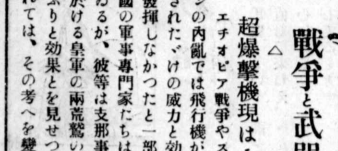 戰爭と武器
超爆擊機現は
△
エチオピア戰爭やス
ンの內亂では飛行機が
されただけの威力と効
發揮しなかつたと一部
國の軍事專門家たちは
るが、彼等は支那事
於ける皇軍の兩荒鷲の
ぶりと効果とを見せつ
れては、その考へを變